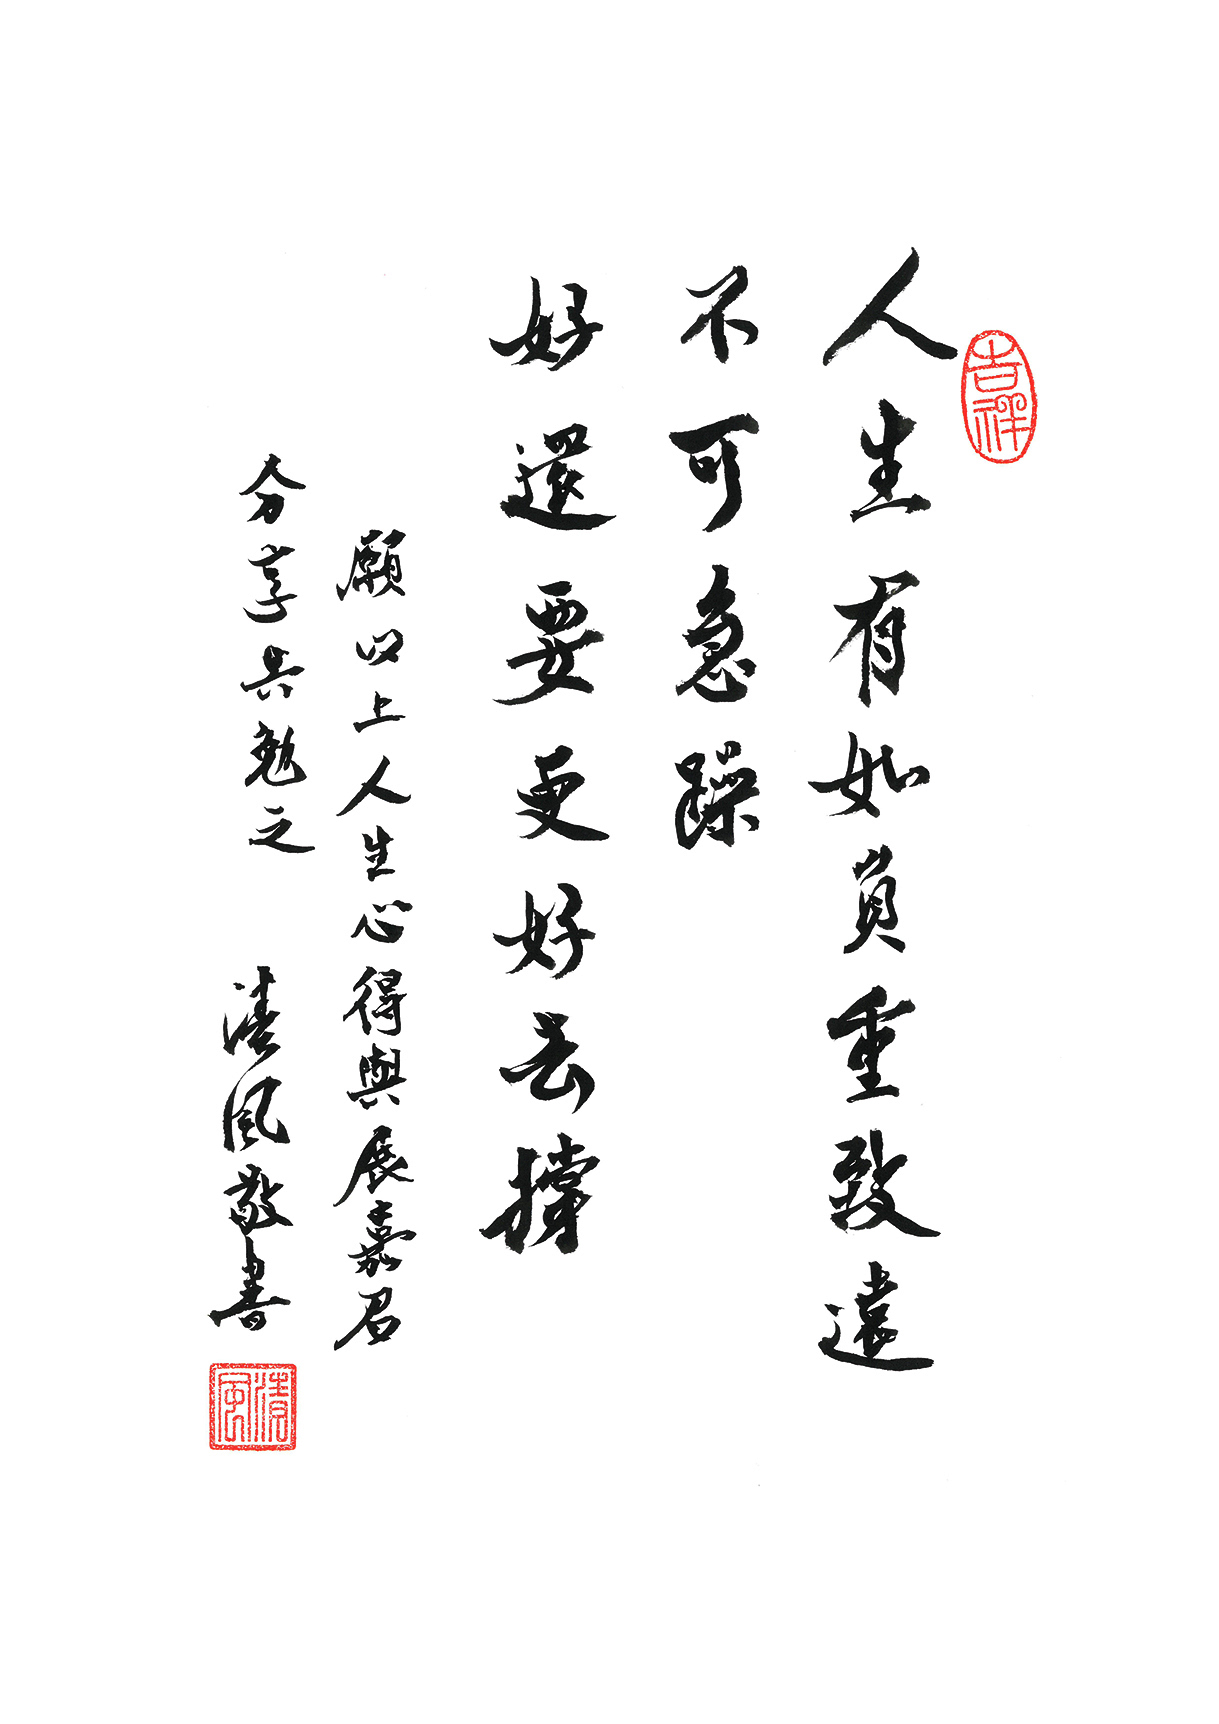 吉祥
人生有如負重致遠
不可急躁
好還要更好去撐
願以上人生心得與展嘉君
分享共勉之 清風敬書
清風